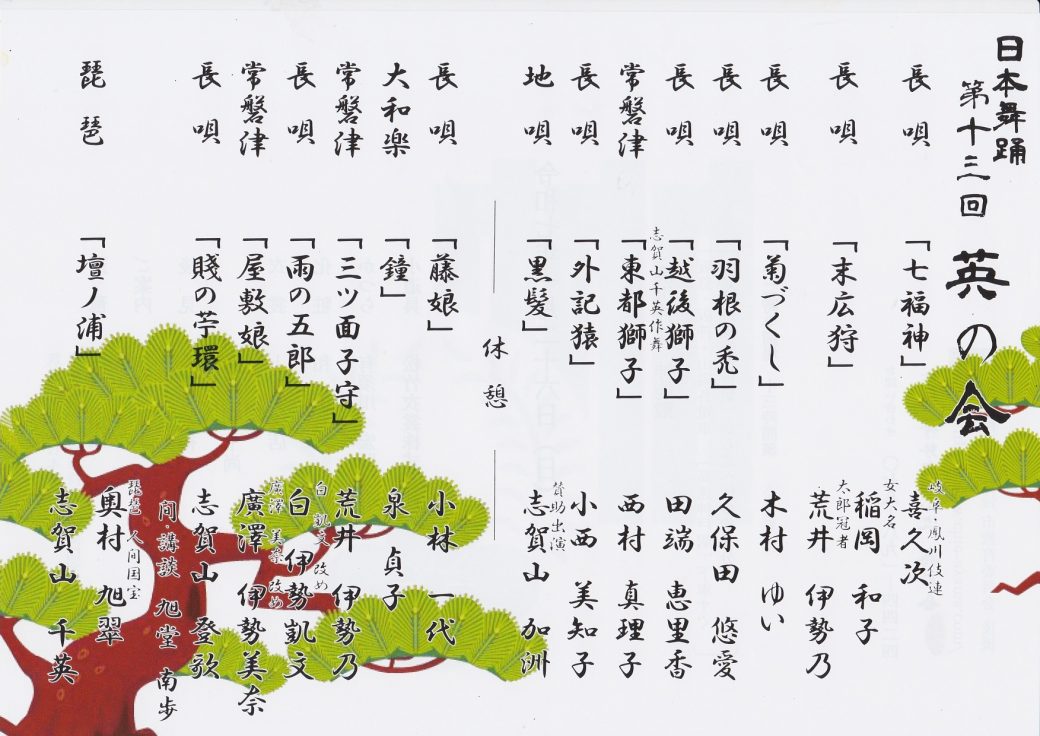 日本舞踊
第十三回 英の会
長唄 「七福神」 岐阜・鳳川伎連 喜久次
長唄 「末広狩」 女大名 稲岡 和子
太郎冠者 荒井 伊勢乃
長唄 「菊づくし」 木村 ゆい
長唄 「羽根の禿」 久保田 悠愛
長唄 「越後獅子」 田端 恵里香
志賀山千英作舞
常磐津 「東都獅子」 西村 真理子
長唄 「外記猿」 小西 美知子
地唄 「黒髪」 賛助出演 志賀山 加洲
休憩
長唄 「藤娘」 小林 一代
大和楽 「鐘」 泉 貞子
常磐津 「三ツ面子守」 荒井 伊勢乃
長唄 「雨の五郎」 白 凱文 改め 白 伊勢凱文
常磐津 「屋敷娘」 廣澤 美奈 改め 廣澤 伊勢美奈
長唄 「賤の苧環」 志賀山 登歌
琵琶 「壇ノ浦」 間・講談 旭堂 南歩
琵琶 人間国宝 奥村 旭翠
志賀山 千英